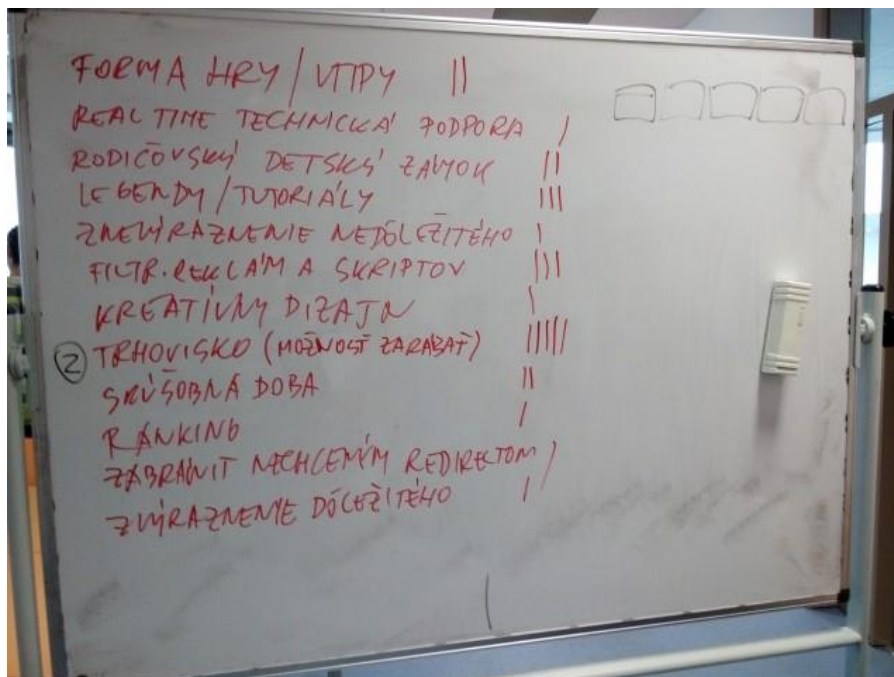 FORMA HRY / VTIPY ||
REAL TIME TECHNICKÁ PODPORA |
RODIČOVSKÝ DETSKÝ ZÁMOK ||
LEGENDY / TUTORIÁLY |||
ZNEVÝRAZNENIE NEDÔLEŽITÉHO |
FILTR. REKLÁM A SKRIPTOV |||
KREATÍVNY DIZAJN |
2 TRHOVISKO (MOŽNOSŤ ZARÁBAŤ) |||||
SKÚŠOBNÁ DOBA ||
RANKING |
ZABRÁNIŤ NECHCENÝM REDIRECTOM |
ZVÝRAZNENIE DÔLEŽITÉHO |